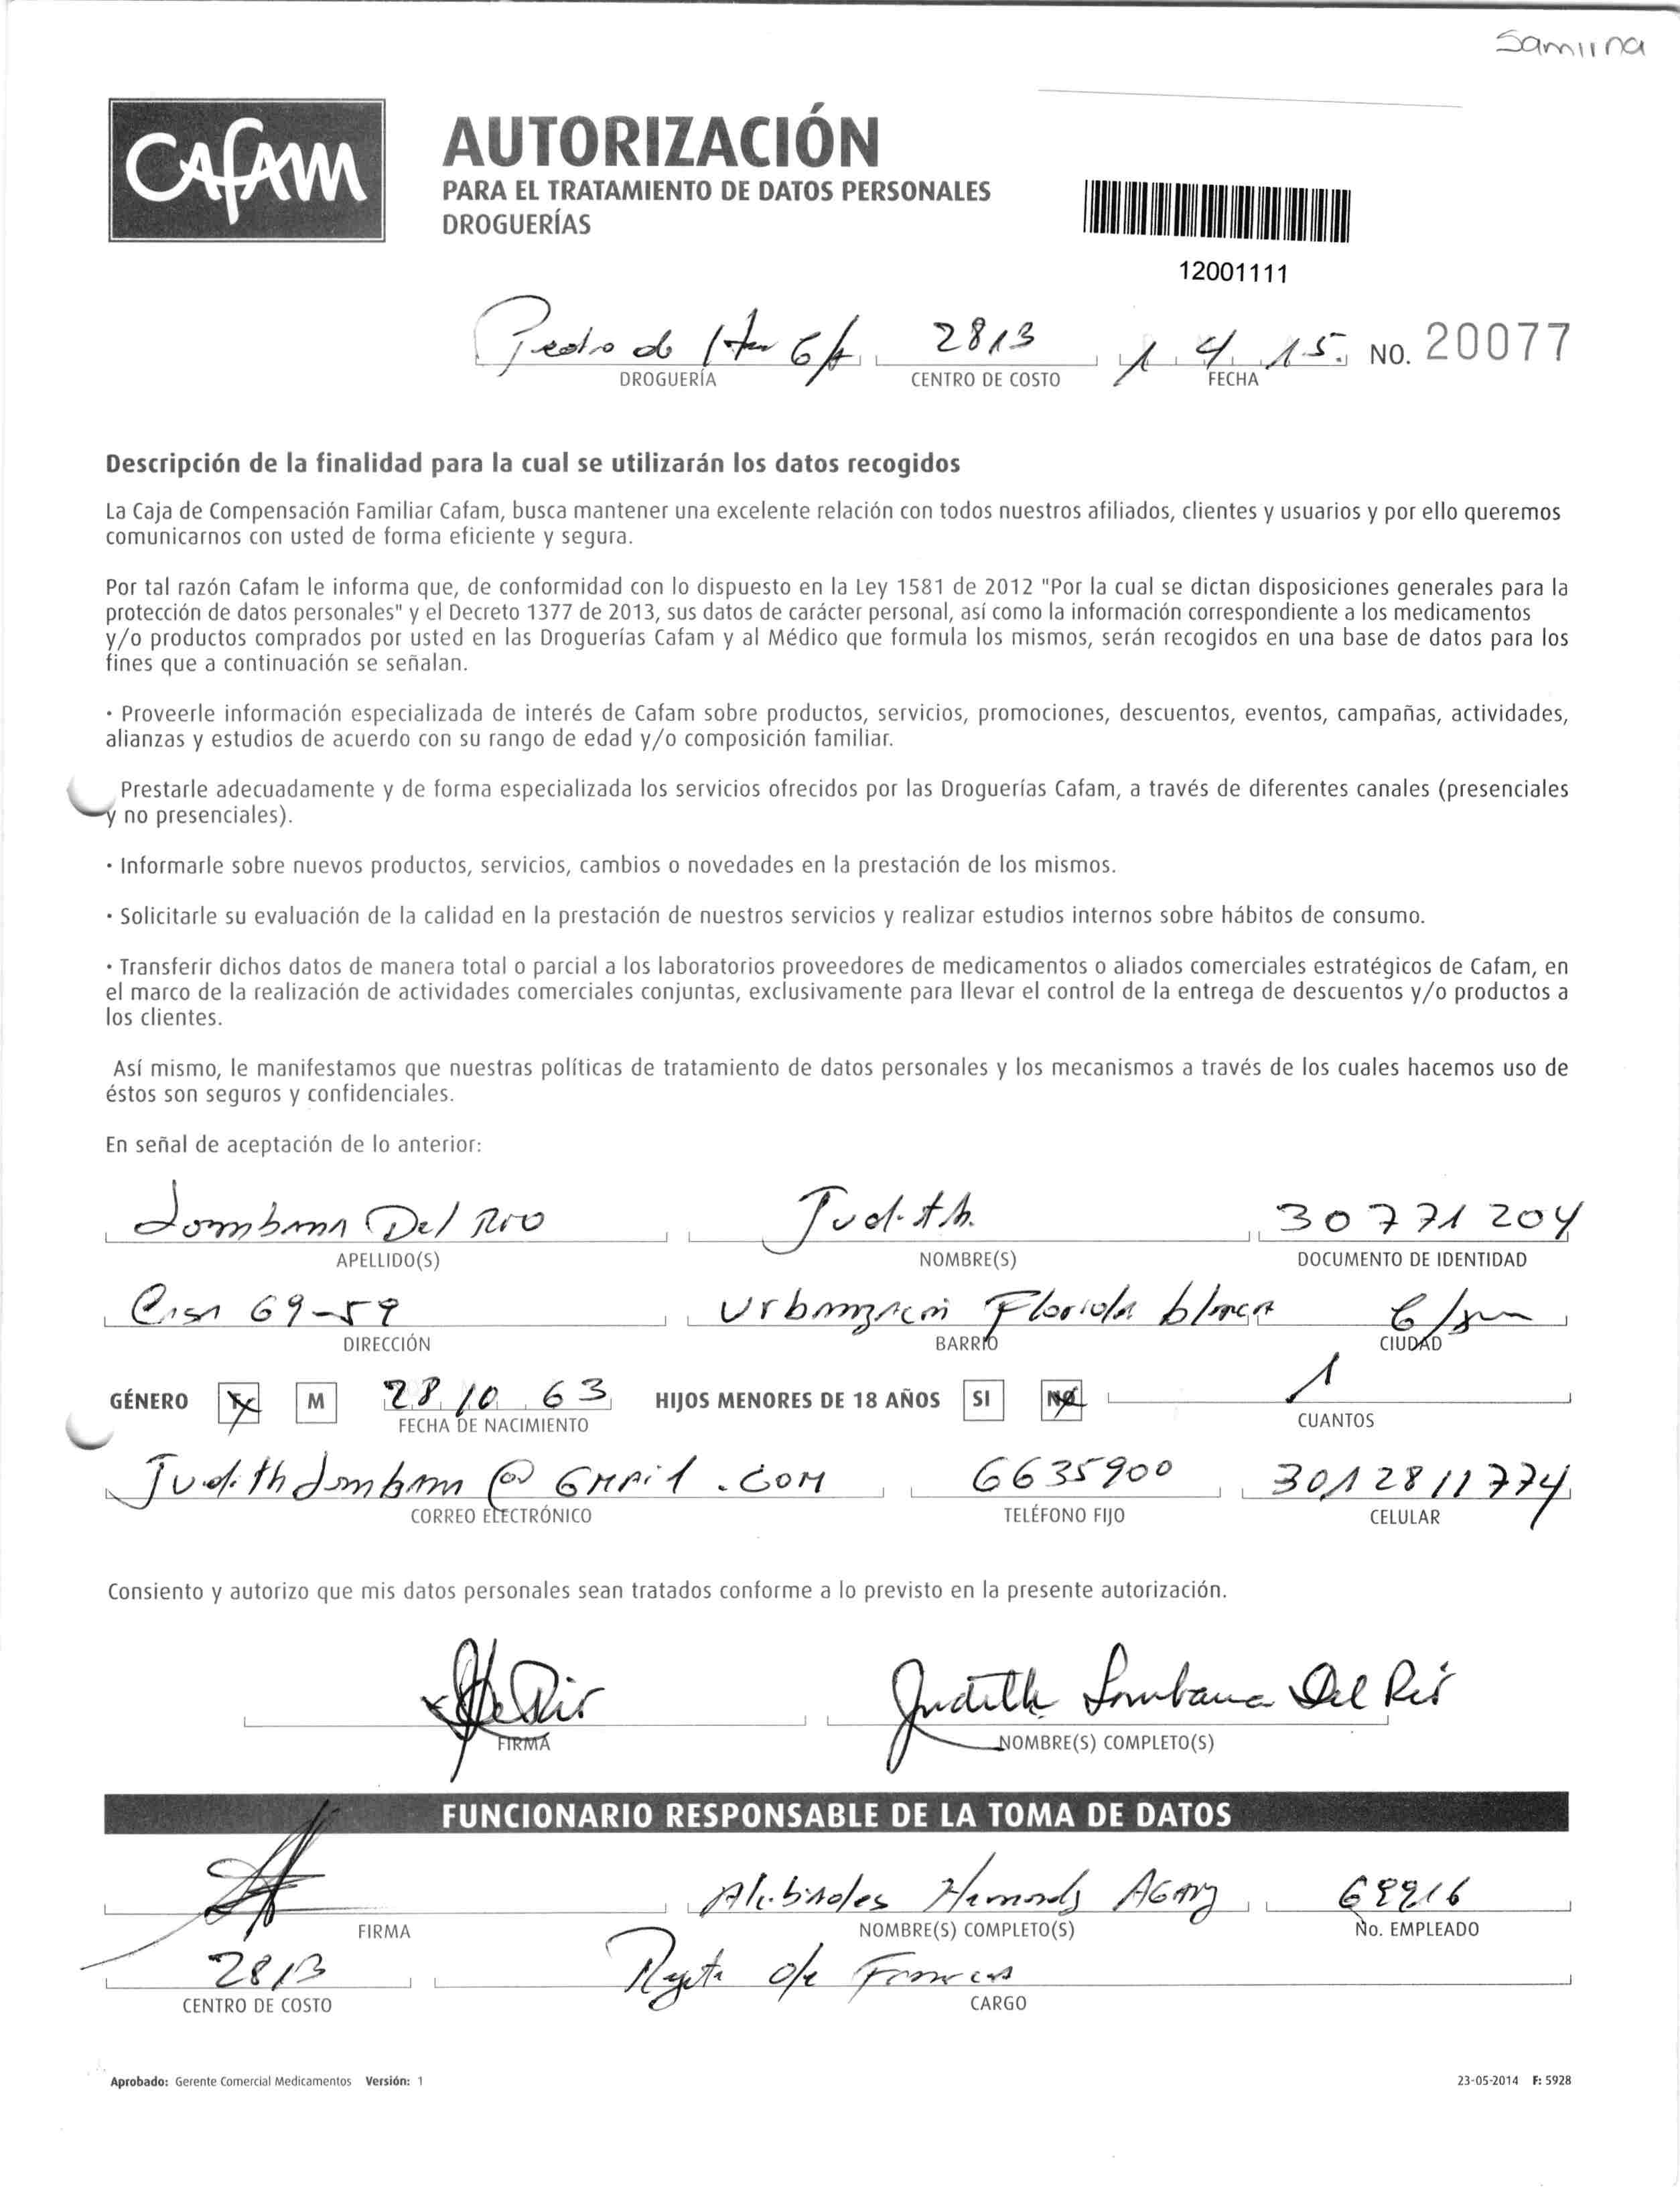 Samiina
CAFAM
AUTORIZACIÓN
PARA EL TRATAMIENTO DE DATOS PERSONALES
DROGUERÍAS
12001111
Pedro de 2813 1 4 15. NO. 20077
DROGUERÍA CENTRO DE COSTO FECHA
Descripción de la finalidad para la cual se utilizarán los datos recogidos
La Caja de Compensación Familiar Cafam, busca mantener una excelente relación con todos nuestros afiliados, clientes y usuarios y por ello queremos
comunicarnos con usted de forma eficiente y segura.
Por tal razón Cafam le informa que, de conformidad con lo dispuesto en la Ley 1581 de 2012 "Por la cual se dictan disposiciones generales para la
protección de datos personales" y el Decreto 1377 de 2013, sus datos de carácter personal, así como la información correspondiente a los medicamentos
y/o productos comprados por usted en las Droguerías Cafam y al Médico que formula los mismos, serán recogidos en una base de datos para los
fines que a continuación se señalan.
· Proveerle información especializada de interés de Cafam sobre productos, servicios, promociones, descuentos, eventos, campañas, actividades,
alianzas y estudios de acuerdo con su rango de edad y/o composición familiar.
Prestarle adecuadamente y de forma especializada los servicios ofrecidos por las Droguerías Cafam, a través de diferentes canales (presenciales
y no presenciales).
· Informarle sobre nuevos productos, servicios, cambios o novedades en la prestación de los mismos.
· Solicitarle su evaluación de la calidad en la prestación de nuestros servicios y realizar estudios internos sobre hábitos de consumo.
· Transferir dichos datos de manera total o parcial a los laboratorios proveedores de medicamentos o aliados comerciales estratégicos de Cafam, en
el marco de la realización de actividades comerciales conjuntas, exclusivamente para llevar el control de la entrega de descuentos y/o productos a
los clientes.
Así mismo, le manifestamos que nuestras políticas de tratamiento de datos personales y los mecanismos a través de los cuales hacemos uso de
éstos son seguros y confidenciales.
En señal de aceptación de lo anterior:
Lombana Del Rio Judith. 30771204
APELLIDO(S) NOMBRE(S) DOCUMENTO DE IDENTIDAD
Casa 69-59 Urbanización Florida blanca
DIRECCIÓN BARRIO CIUDAD
GÉNERO F M 28 10 63 HIJOS MENORES DE 18 AÑOS SI NO 1
FECHA DE NACIMIENTO CUANTOS
Judithlombana@GMAil.COM 6635900 3012811774
CORREO ELECTRÓNICO TELÉFONO FIJO CELULAR
Consiento y autorizo que mis datos personales sean tratados conforme a lo previsto en la presente autorización.
Judith Lombana Del Rio
FIRMA NOMBRE(S) COMPLETO(S)
FUNCIONARIO RESPONSABLE DE LA TOMA DE DATOS
FIRMA NOMBRE(S) COMPLETO(S) No. EMPLEADO
2813 de
CENTRO DE COSTO CARGO
Aprobado: Gerente Comercial Medicamentos Versión: 1 23-05-2014 F: 5928